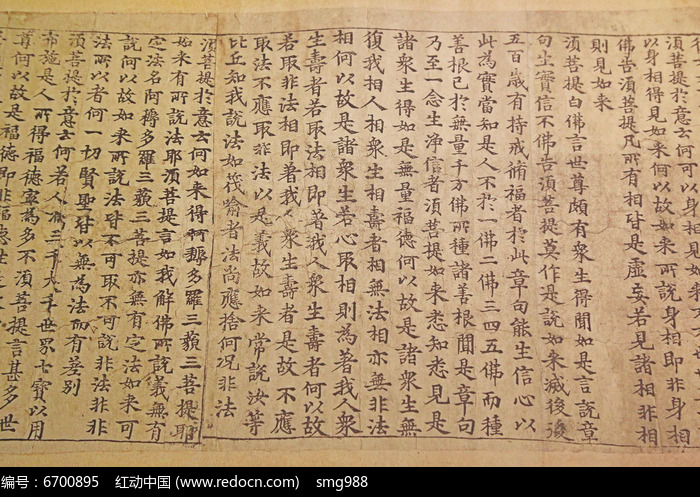 須菩提於意云何可以身相見如來不
以身相得見如來何以故如來所說身相即非身相
佛告須菩提凡所有相皆是虛妄若見諸相非相
則見如來
須菩提白佛言世尊頗有衆生得聞如是言說章
句生實信不佛告須菩提莫作是說如來滅後後
五百歲有持戒脩福者於此章句能生信心以
此為實當知是人不於一佛二佛三四五佛而種
善根已於無量千万佛所種諸善根聞是章句
乃至一念生淨信者須菩提如來悉知悉見是
諸衆生得如是無量福德何以故是諸衆生無
復我相人相衆生相壽者相無法相亦無非法
相何以故是諸衆生若心取相則為著我人衆
生壽者若取法相即著我人衆生壽者何以故
若取非法相即著我人衆生壽者是故不應
取法不應取非法以是義故如來常說汝等
比丘知我說法如筏喻者法尚應捨何況非法
須菩提於意云何如來得阿耨多羅三藐三菩提耶
如來有所說法耶須菩提言如我解佛所說義無有
定法名阿耨多羅三藐三菩提亦無有定法如來可
說何以故如來所說法皆不可取不可說非法非非
法所以者何一切賢聖皆以無為法而有差別
須菩提於意云何若人滿三千大千世界七寶以用
布施是人所得福德寧為多不須菩提言甚多世
尊何以故是福德即非福德性
编号：6700895 红动中国 (www.redocn.com) smg988